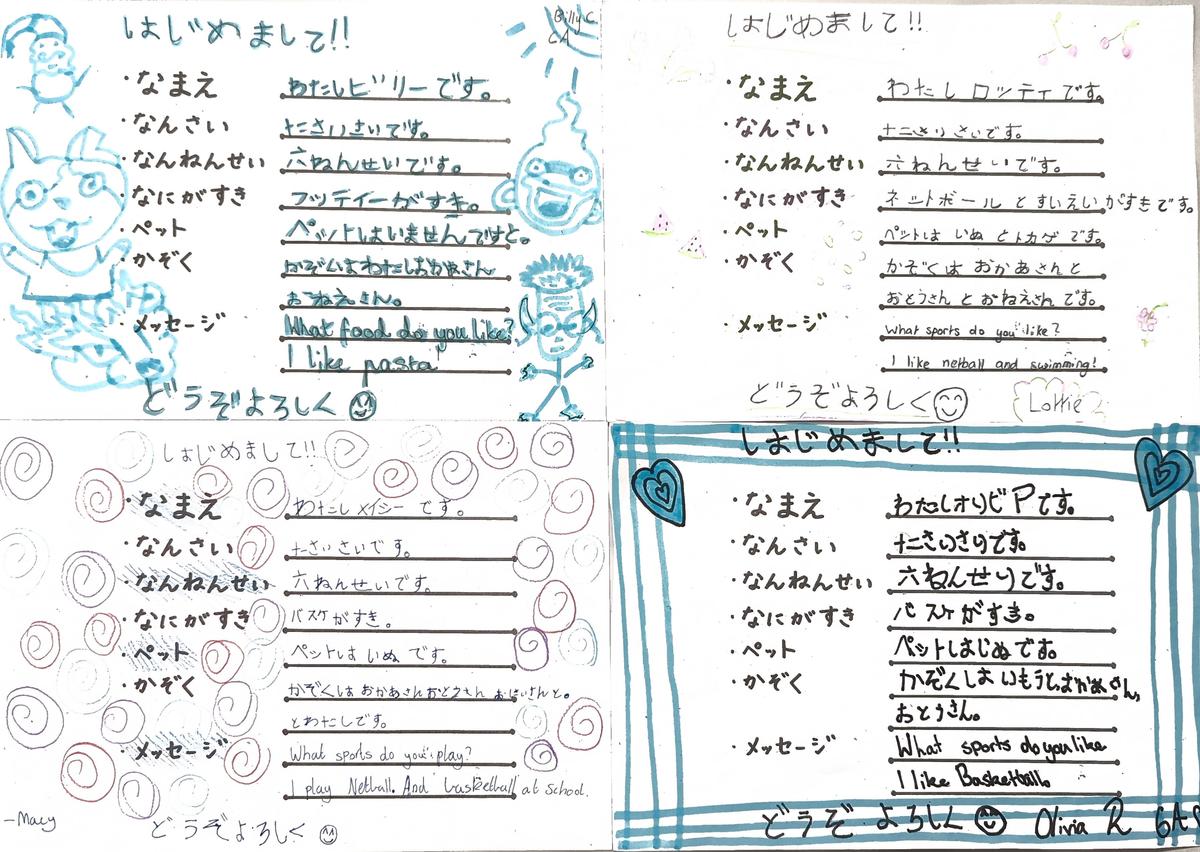 はじめまして!!
Billy C.
・なまえ わたしビリーです。
・なんさい 十二さいさいです。
・なんねんせい 六ねんせいです。
・なにがすき フッティーがすき。
・ペット ペットはいませんですと。
・かぞく かぞくはわたしおかあさん
おねえさん。
・メッセージ What food do you like?
I like pasta
どうぞよろしく
はじめまして!!
・なまえ わたし ロッティ です。
・なんさい 十二さいさいです。
・なんねんせい 六ねんせいです。
・なにがすき ネットボール と すいえい がすきです。
・ペット ペットは いぬ とトカゲ です。
・かぞく かぞくは おかあさんと
おとうさん と おねえさん です。
・メッセージ What sports do you like?
I like netball and swimming!
どうぞよろしく
Lottie
はじめまして!!
・なまえ わたし メイシー です。
・なんさい 十二さいさいです。
・なんねんせい 六ねんせいです。
・なにがすき バスケがすき。
・ペット ペットは いぬ です。
・かぞく かぞくは おかあさんおとうさん おにいさんと。
とわたしです。
・メッセージ What sports do you play?
I play Netball. And basketball at school.
-Macy
どうぞよろしく
はじめまして!!
・なまえ わたしオリビPです。
・なんさい 十二さいさいです。
・なんねんせい 六ねんせいです。
・なにがすき バスケがすき。
・ペット ペットはいぬです。
・かぞく かぞくは いもうと、おかあさん,
おとうさん。
・メッセージ What sports do you like
I like Basketball.
どうぞ よろしく Olivia R